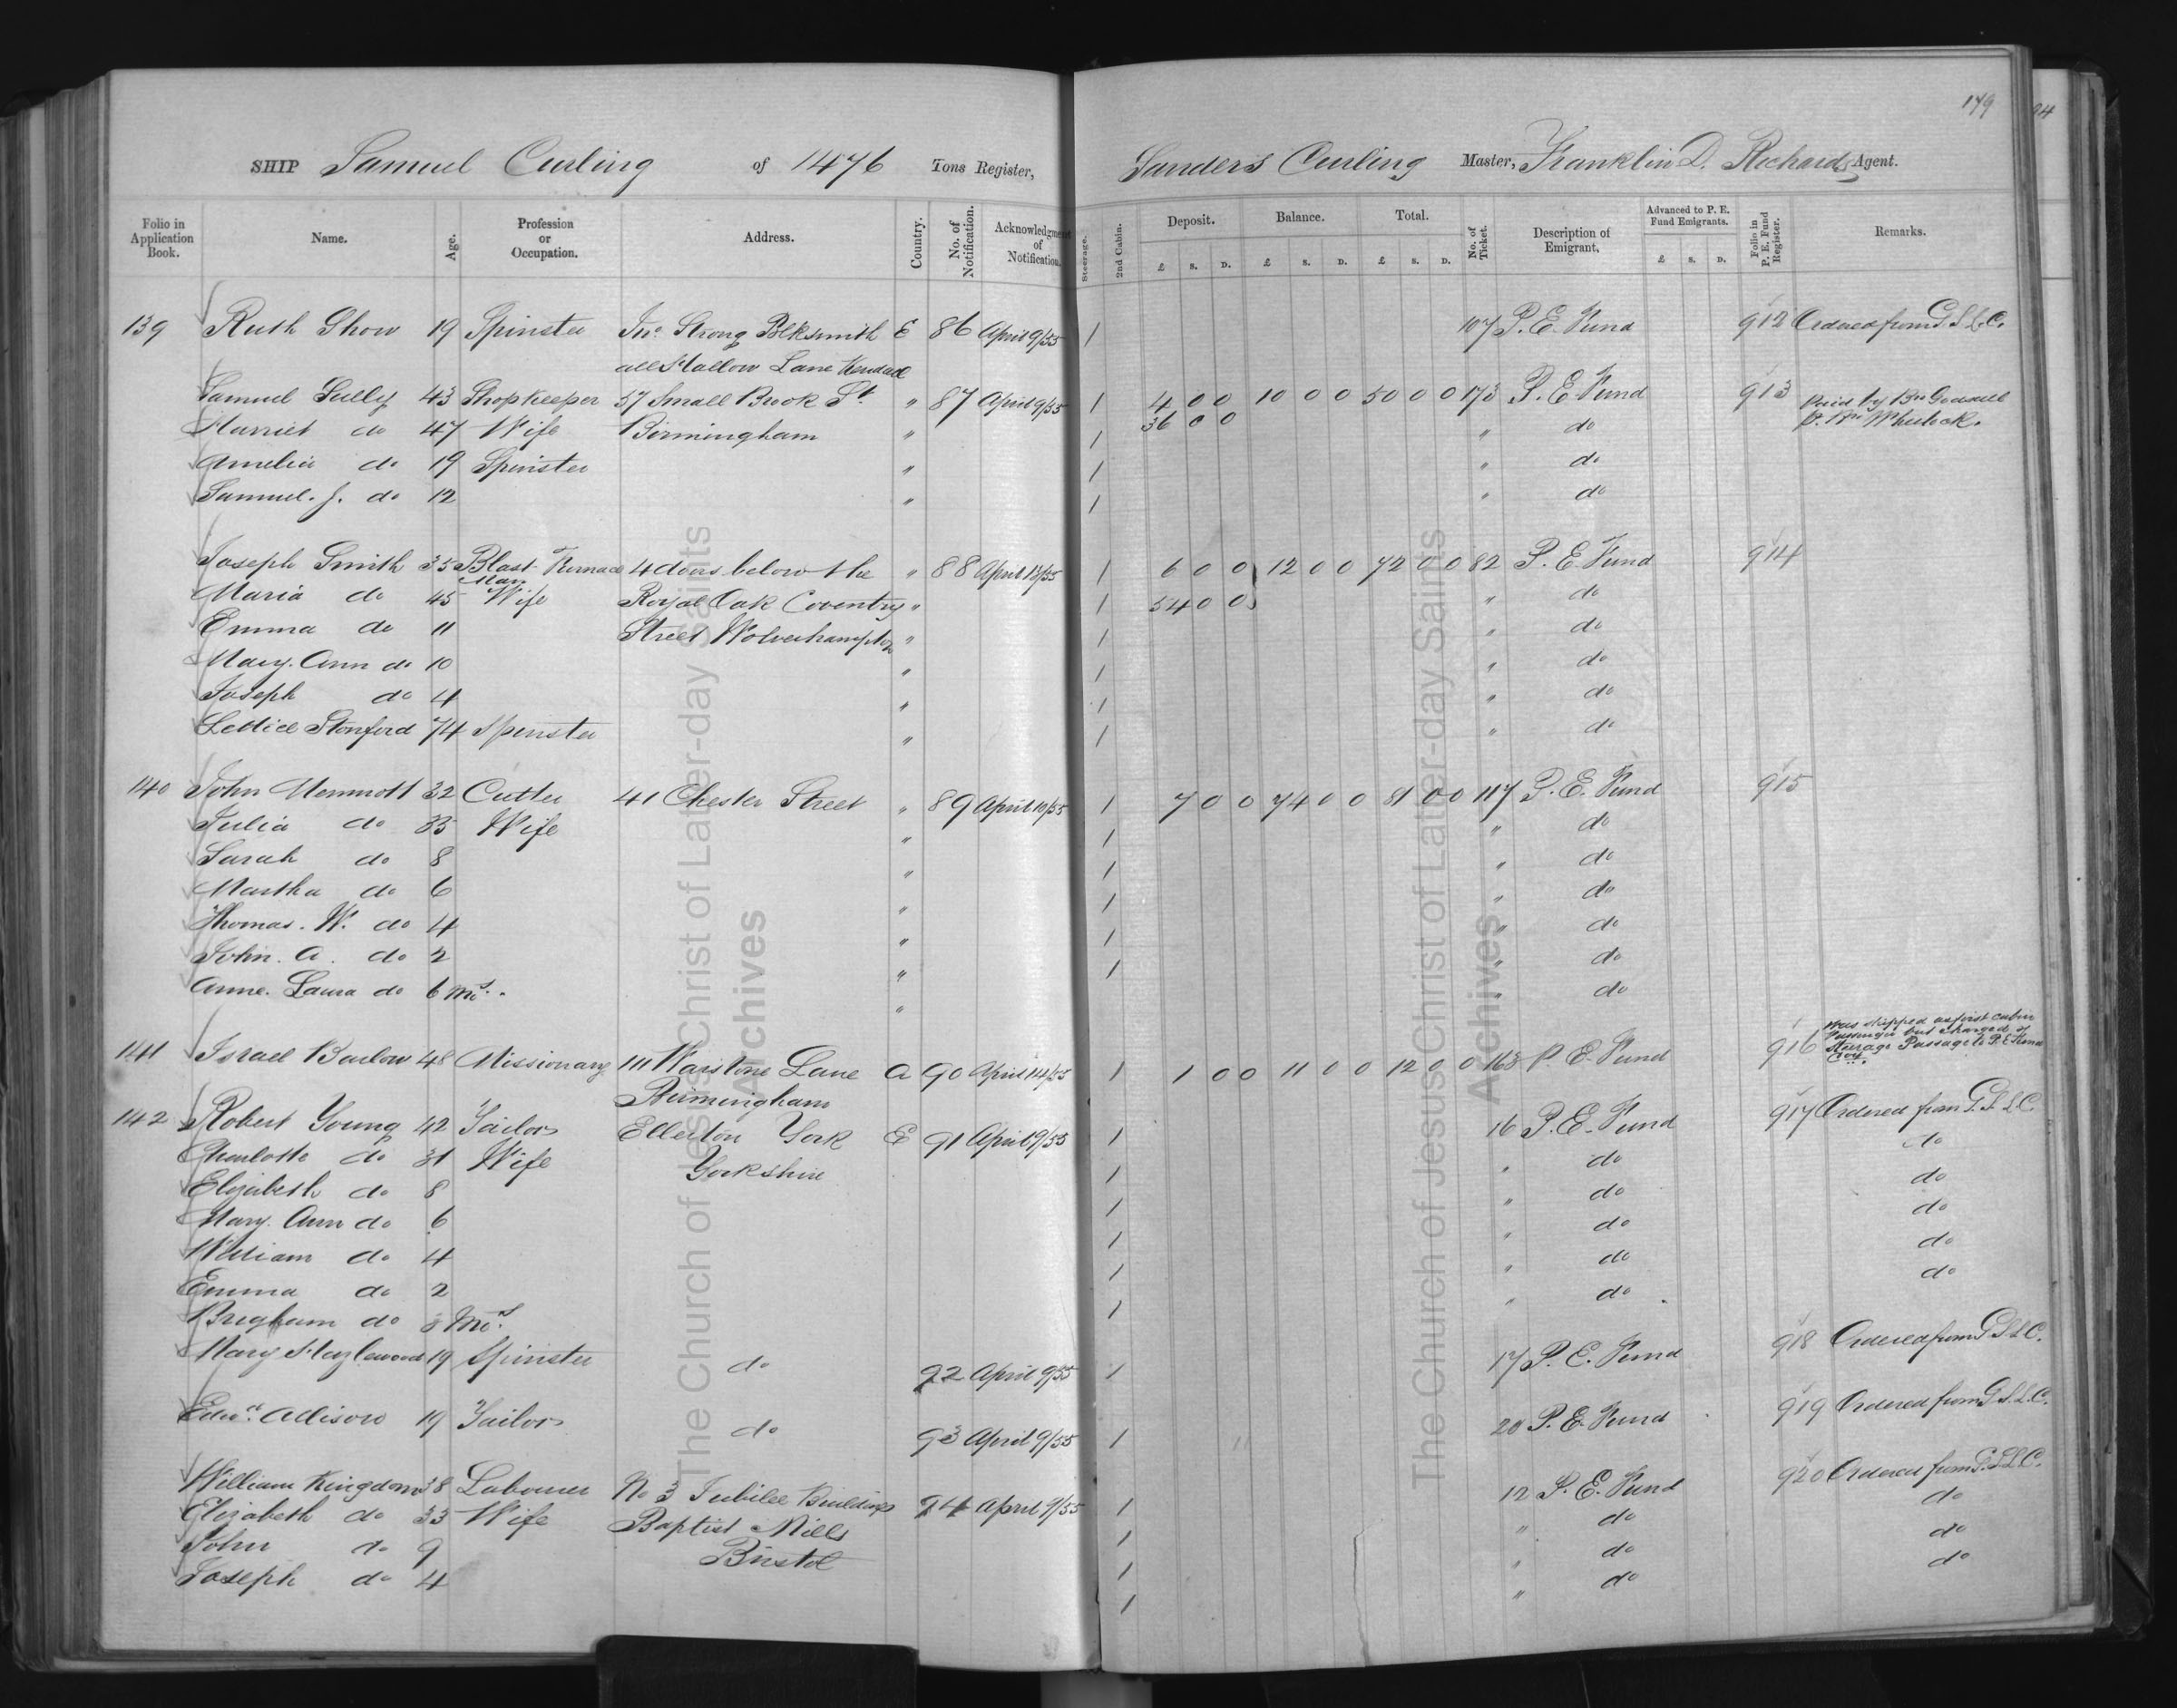 179
SHIP Samuel Curling of 1476 Tons Register, Sanders Curling Master, Franklin D. Richards Agent.
Folio in Application Book. Name. Age. Profession or Occupation. Address. Country. No. of Notification. Acknowledgment of Notification. Steerage. 2nd Cabin. Deposit. Balance. Total. No. of Ticket. Description of Emigrant. Advanced to P. E. Fund Emigrants. Folio in P. E. Fund Register. Remarks.
£ S. D. £ S. D. £ S. D. £ S. D.
139 Ruth Show 19 Spinster Jno. Strong Blksmith E 86 April 9/55 1 107 P. E. Fund 912 Ordered from G.S.L.C.
all Hallow Lane Kendal
Samuel Gully 43 Shopkeeper 57 Small Brook St " 87 April 9/55 1 4 0 0 10 0 0 50 0 0 173 P. E. Fund 913 Paid by Bro
Harriet do 47 Wife Birmingham " 1 36 0 0 " do Wheelock.
Amelia do 19 Spinster " 1 " do
Samuel. J. do 12 " 1 " do
Joseph Smith 35 Blast Furnace 4 doors below the " 88 April 13/55 1 6 0 0 12 0 0 72 0 0 82 P. E. Fund 914
Man
Maria do 45 Wife Royal Oak Coventry " 1 54 0 0 " do
Emma do 11 Street Wolverhampton " 1 " do
Mary. Ann do 10 " 1 " do
Joseph do 4 " 1 " do
Lettice Stonford 74 Spinster " 1 " do
140 John Memmott 32 Cutler 41 Chester Street " 89 April 10/55 1 7 0 0 74 0 0 81 0 0 117 P. E. Fund 915
Julia do 35 Wife " 1 " do
Sarah do 8 " 1 " do
Martha do 6 " 1 " do
Thomas. W. do 4 " 1 " do
John. A. do 2 " 1 " do
Anne. Laura do 6 Mos. " " do
141 Israel Barlow 48 Missionary 111 Warstone Lane A 90 April 14/55 1 1 0 0 11 0 0 12 0 0 163 P. E. Fund 916 Was shipped as first cabin
Passenger but charged as
Steerage Passage to P. E. Fund
Birmingham
142 Robert Young 42 Tailor Ellerton York E 91 April 9/55 1 16 P. E. Fund 917 Ordered from G.S.L.C.
Charlotte do 31 Wife Yorkshire 1 " do do
Elizabeth do 8 1 " do do
Mary. Ann do 6 1 " do do
William do 4 1 " do do
Emma do 2 1 " do do
Brigham do 8 Mos.
Mary Hazlewood 19 Spinster do 92 April 9/55 1 17 P. E. Fund 918 Ordered from G.S.L.C.
Edwd. Adison 19 Tailor do 93 April 9/55 1 20 P. E. Fund 919 Ordered from G.S.L.C.
William Kingdom 38 Labourer No 3 Jubilee Buildings 94 April 9/55 1 12 P. E. Fund 920 Ordered from G.S.L.C.
Elizabeth do 33 Wife Baptist Mills 1 " do do
John do 9 Bristol 1 " do do
Joseph do 4 1 " do do
The Church of Jesus Christ of Later-day Saints
Archives
The Church of Jesus Christ of Later-day Saints
Archives